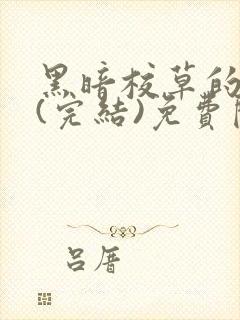 黑暗校草的
(完結)免費
呂厝